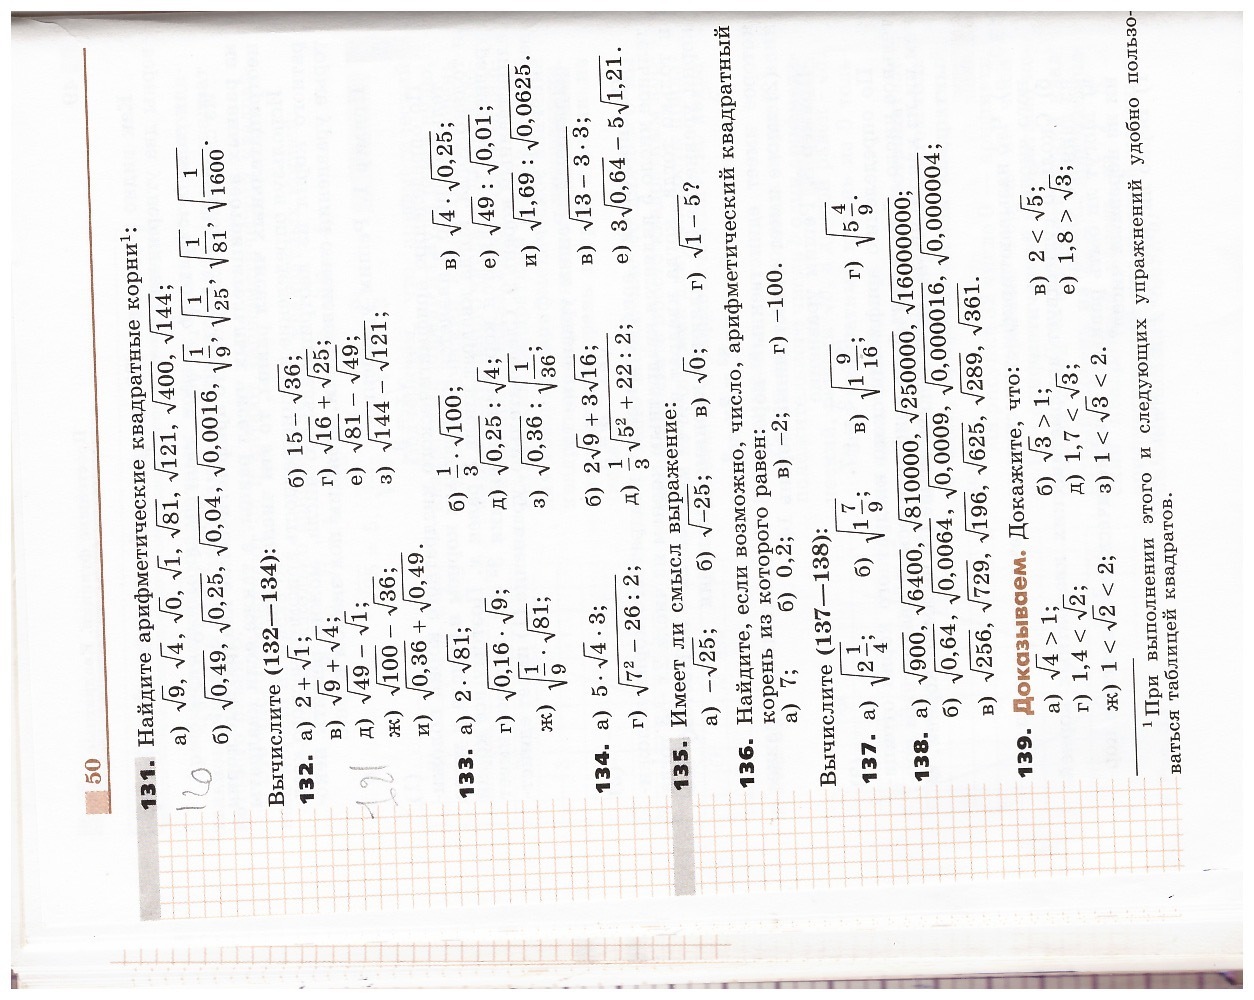 50
131. Найдите арифметические квадратные корни¹:
а) √9, √4, √0, √1, √81, √121, √400, √144;
б) √0,49, √0,25, √0,04, √0,0016, √(1/9), √(1/25), √(1/81), √(1/1600).
120
Вычислите (132—134):
132. а) 2 + √1; б) 15 − √36;
в) √9 + √4; г) √16 + √25;
д) √49 − √1; е) √81 − √49;
ж) √100 − √36; з) √144 − √121;
и) √0,36 + √0,49.
121
133. а) 2 · √81; б) 1/3 · √100; в) √4 · √0,25;
г) √0,16 · √9; д) √0,25 : √4; е) √49 : √0,01;
ж) √(1/9) · √81; з) √0,36 : √(1/36); и) √1,69 : √0,0625.
134. а) 5 · √4 · 3; б) 2√9 + 3√16; в) √(13 − 3 · 3);
г) √(7² − 26 : 2); д) 1/3 √(5² + 22 : 2); е) 3√0,64 − 5√1,21.
135. Имеет ли смысл выражение:
а) −√25; б) √−25; в) √0; г) √(1 − 5)?
136. Найдите, если возможно, число, арифметический квадратный
корень из которого равен:
а) 7; б) 0,2; в) −2; г) −100.
Вычислите (137—138):
137. а) √(2 1/4); б) √(1 7/9); в) √(1 9/16); г) √(5 4/9).
138. а) √900, √6400, √810000, √250000, √16000000;
б) √0,64, √0,0064, √0,0009, √0,000016, √0,000004;
в) √256, √729, √196, √625, √289, √361.
139. Доказываем. Докажите, что:
а) √4 > 1; б) √3 > 1; в) 2 < √5;
г) 1,4 < √2; д) 1,7 < √3; е) 1,8 > √3;
ж) 1 < √2 < 2; з) 1 < √3 < 2.
¹ При выполнении этого и следующих упражнений удобно пользо-
ваться таблицей квадратов.